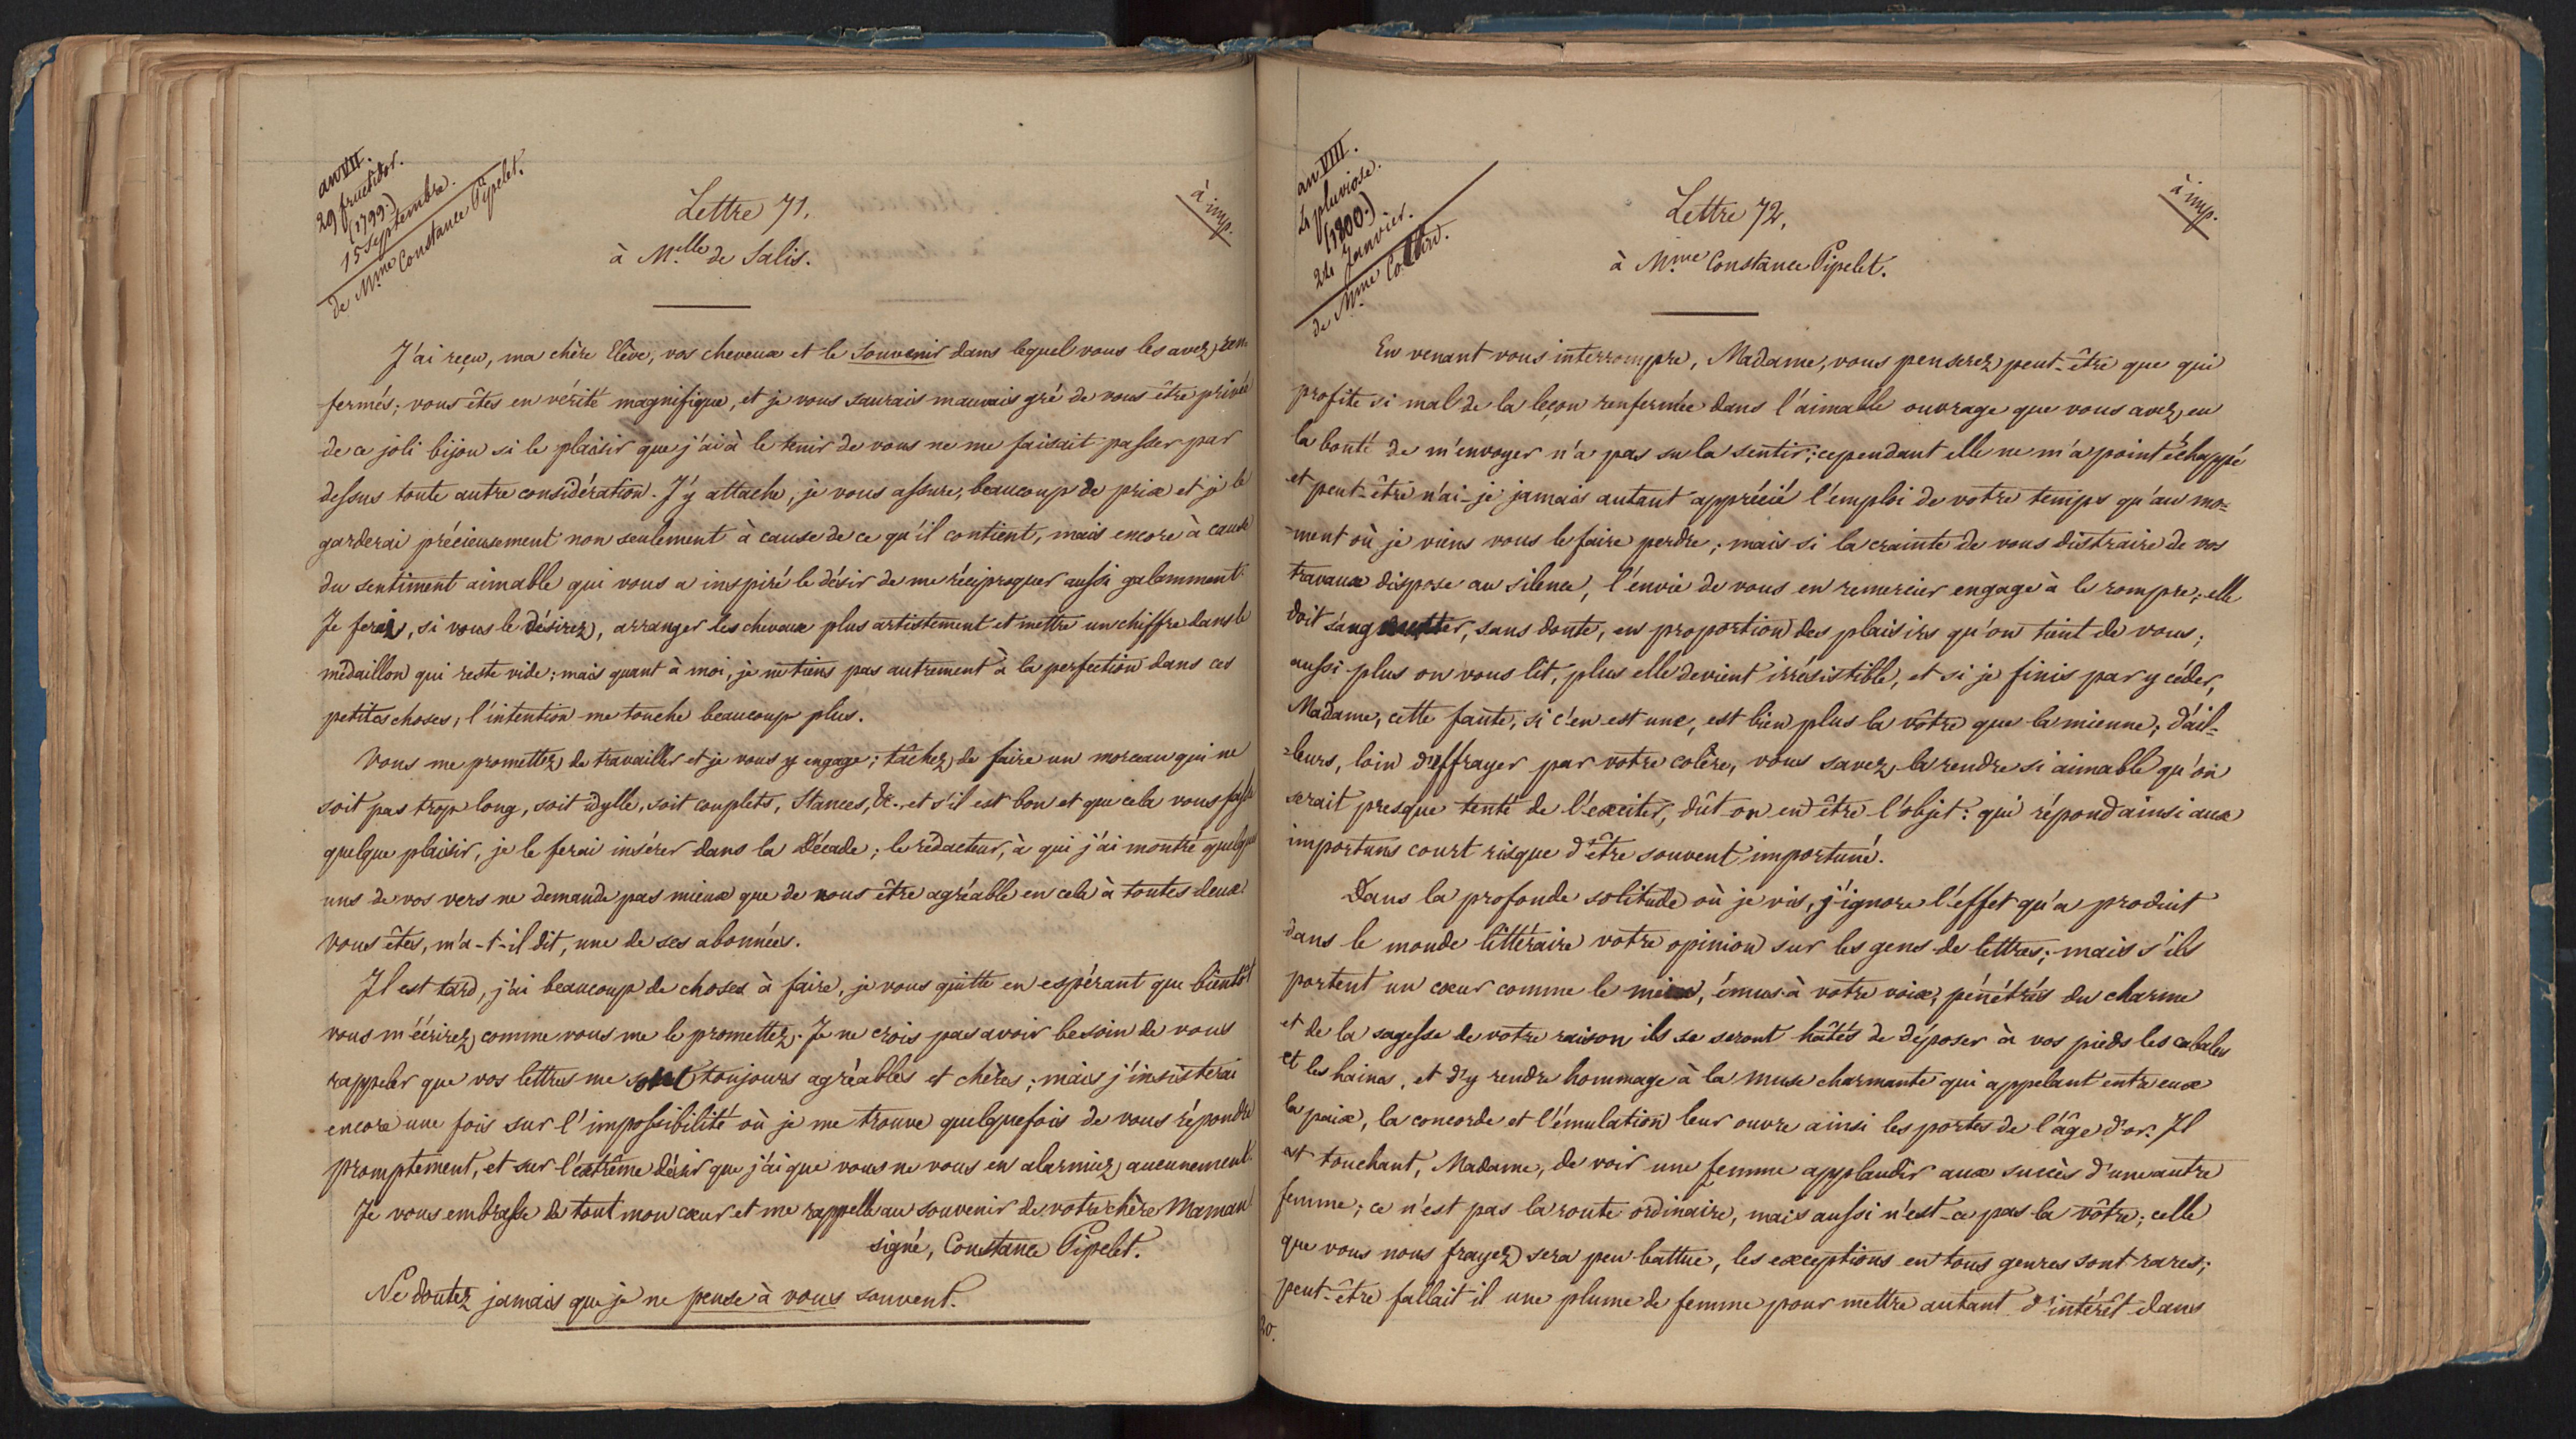 an VII.
29 fructidor.
(1799.)
15 Septembre.
de M.me Constance Pipelet.
à imp.
Lettre 71.
à M.elle de Salis.
J'ai reçu, ma chère Elève, vos cheveux et le Souvenir dans lequel vous les avez ren
fermés; vous êtes en vérité magnifique, et je vous saurais mauvais gré de vous être privée
de ce joli bijou si le plaisir que j'ai à le tenir de vous ne me faisait passer par
dessus toute autre considération. J'y attache, je vous assure, beaucoup de prix et je le
garderai précieusement non seulement à cause de ce qu'il contient, mais encore à cause
du sentiment aimable qui vous a inspiré le désir de me réciproquer aussi galamment.
Je ferais, si vous le désirez, arranger les cheveux plus artistement et mettre un chiffre dans le
médaillon qui reste vide; mais quant à moi, je ne tiens pas autrement à la perfection dans ces
petites choses; l'intention me touche beaucoup plus.
Vous me promettez de travailler et je vous y engage; tâchez de faire un morceau qui ne
soit pas trop long, soit idylle, soit couplets, Stances, &c. et s'il est bon et que cela vous fasse
quelque plaisir, je le ferai insérer dans la Décade; le rédacteur, à qui j'ai montré quelques
uns de vos vers ne demande pas mieux que de nous être agréable en cela à toutes deux.
Vous êtes, m'a-t-il dit, une de ses abonnées.
Il est tard, j'ai beaucoup de choses à faire, je vous quitte en espérant que bientôt
vous m'écrirez comme vous me le promettez. Je ne crois pas avoir besoin de vous
rappeler que vos lettres me sont toujours agréables et chères; mais j'insisterai
encore une fois sur l'impossibilité où je me trouve quelquefois de vous répondre
promptement, et sur l'extrême désir que j'ai que vous ne vous en alarmiez aucunement.
Je vous embrasse de tout mon cœur et me rappelle au souvenir de votre chère Maman.
signé, Constance Pipelet.
Ne doutez jamais que je ne pense à vous souvent.
an VIII.
4 pluviose.
(1800.)
24 Janvier.
de M.me
à imp.
Lettre 72.
à M.me Constance Pipelet.
En venant vous interrompre, Madame, vous penserez peut-être que qui
profite si mal de la leçon renfermée dans l'aimable ouvrage que vous avez eu
la bonté de m'envoyer n'a pas su la sentir; cependant elle ne m'a point échappé
et peut-être n'ai-je jamais autant apprécié l'emploi de votre temps qu'au mo=
=ment où je viens vous le faire perdre; mais si la crainte de vous distraire de vos
travaux dispose au silence, l'envie de vous en remercier engage à le rompre; elle
doit s'augmenter, sans doute, en proportion des plaisirs qu'on tient de vous;
aussi plus on vous lit, plus elle devient irrésistible, et si je finis par y céder,
Madame, cette faute, si c'en est une, est bien plus la vôtre que la mienne; d'ail=
=leurs, loin d'effrayer par votre colère, vous savez la rendre si aimable qu'on
serait presque tenté de l'exciter, dût-on en être l'objet: qui répond ainsi aux
importuns court risque d'être souvent importuné.
Dans la profonde solitude où je vis, j'ignore l'effet qu'a produit
dans le monde littéraire votre opinion sur les gens de lettres; mais s'ils
portent un cœur comme le mien, émus à votre voix, pénétrés du charme
et de la sagesse de votre raison ils se seront hâtés de déposer à vos pieds les cabales
et les haines, et d'y rendre hommage à la muse charmante qui appelant entre eux
la paix, la concorde et l'émulation leur ouvre ainsi les portes de l'âge d'or. Il
est touchant, Madame, de voir une femme applaudir aux succès d'une autre
femme; ce n'est pas la route ordinaire, mais aussi n'est-ce pas la vôtre; celle
que vous nous frayez sera peu battue, les exceptions en tous genres sont rares;
peut-être fallait il une plume de femme pour mettre autant d'intérêt dans
20.